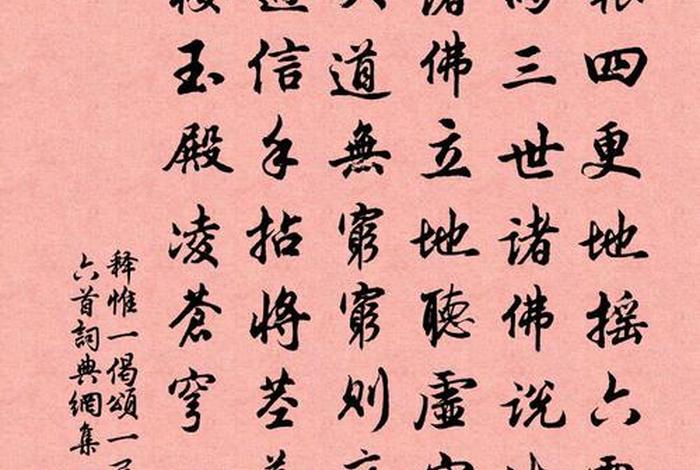 四更地搖六
三世諸佛說
諸佛立地聽虛
道無窮窮則
信手拈將莖
玉殿凌蒼穹
释惟一偈頌一
六首詞典網集